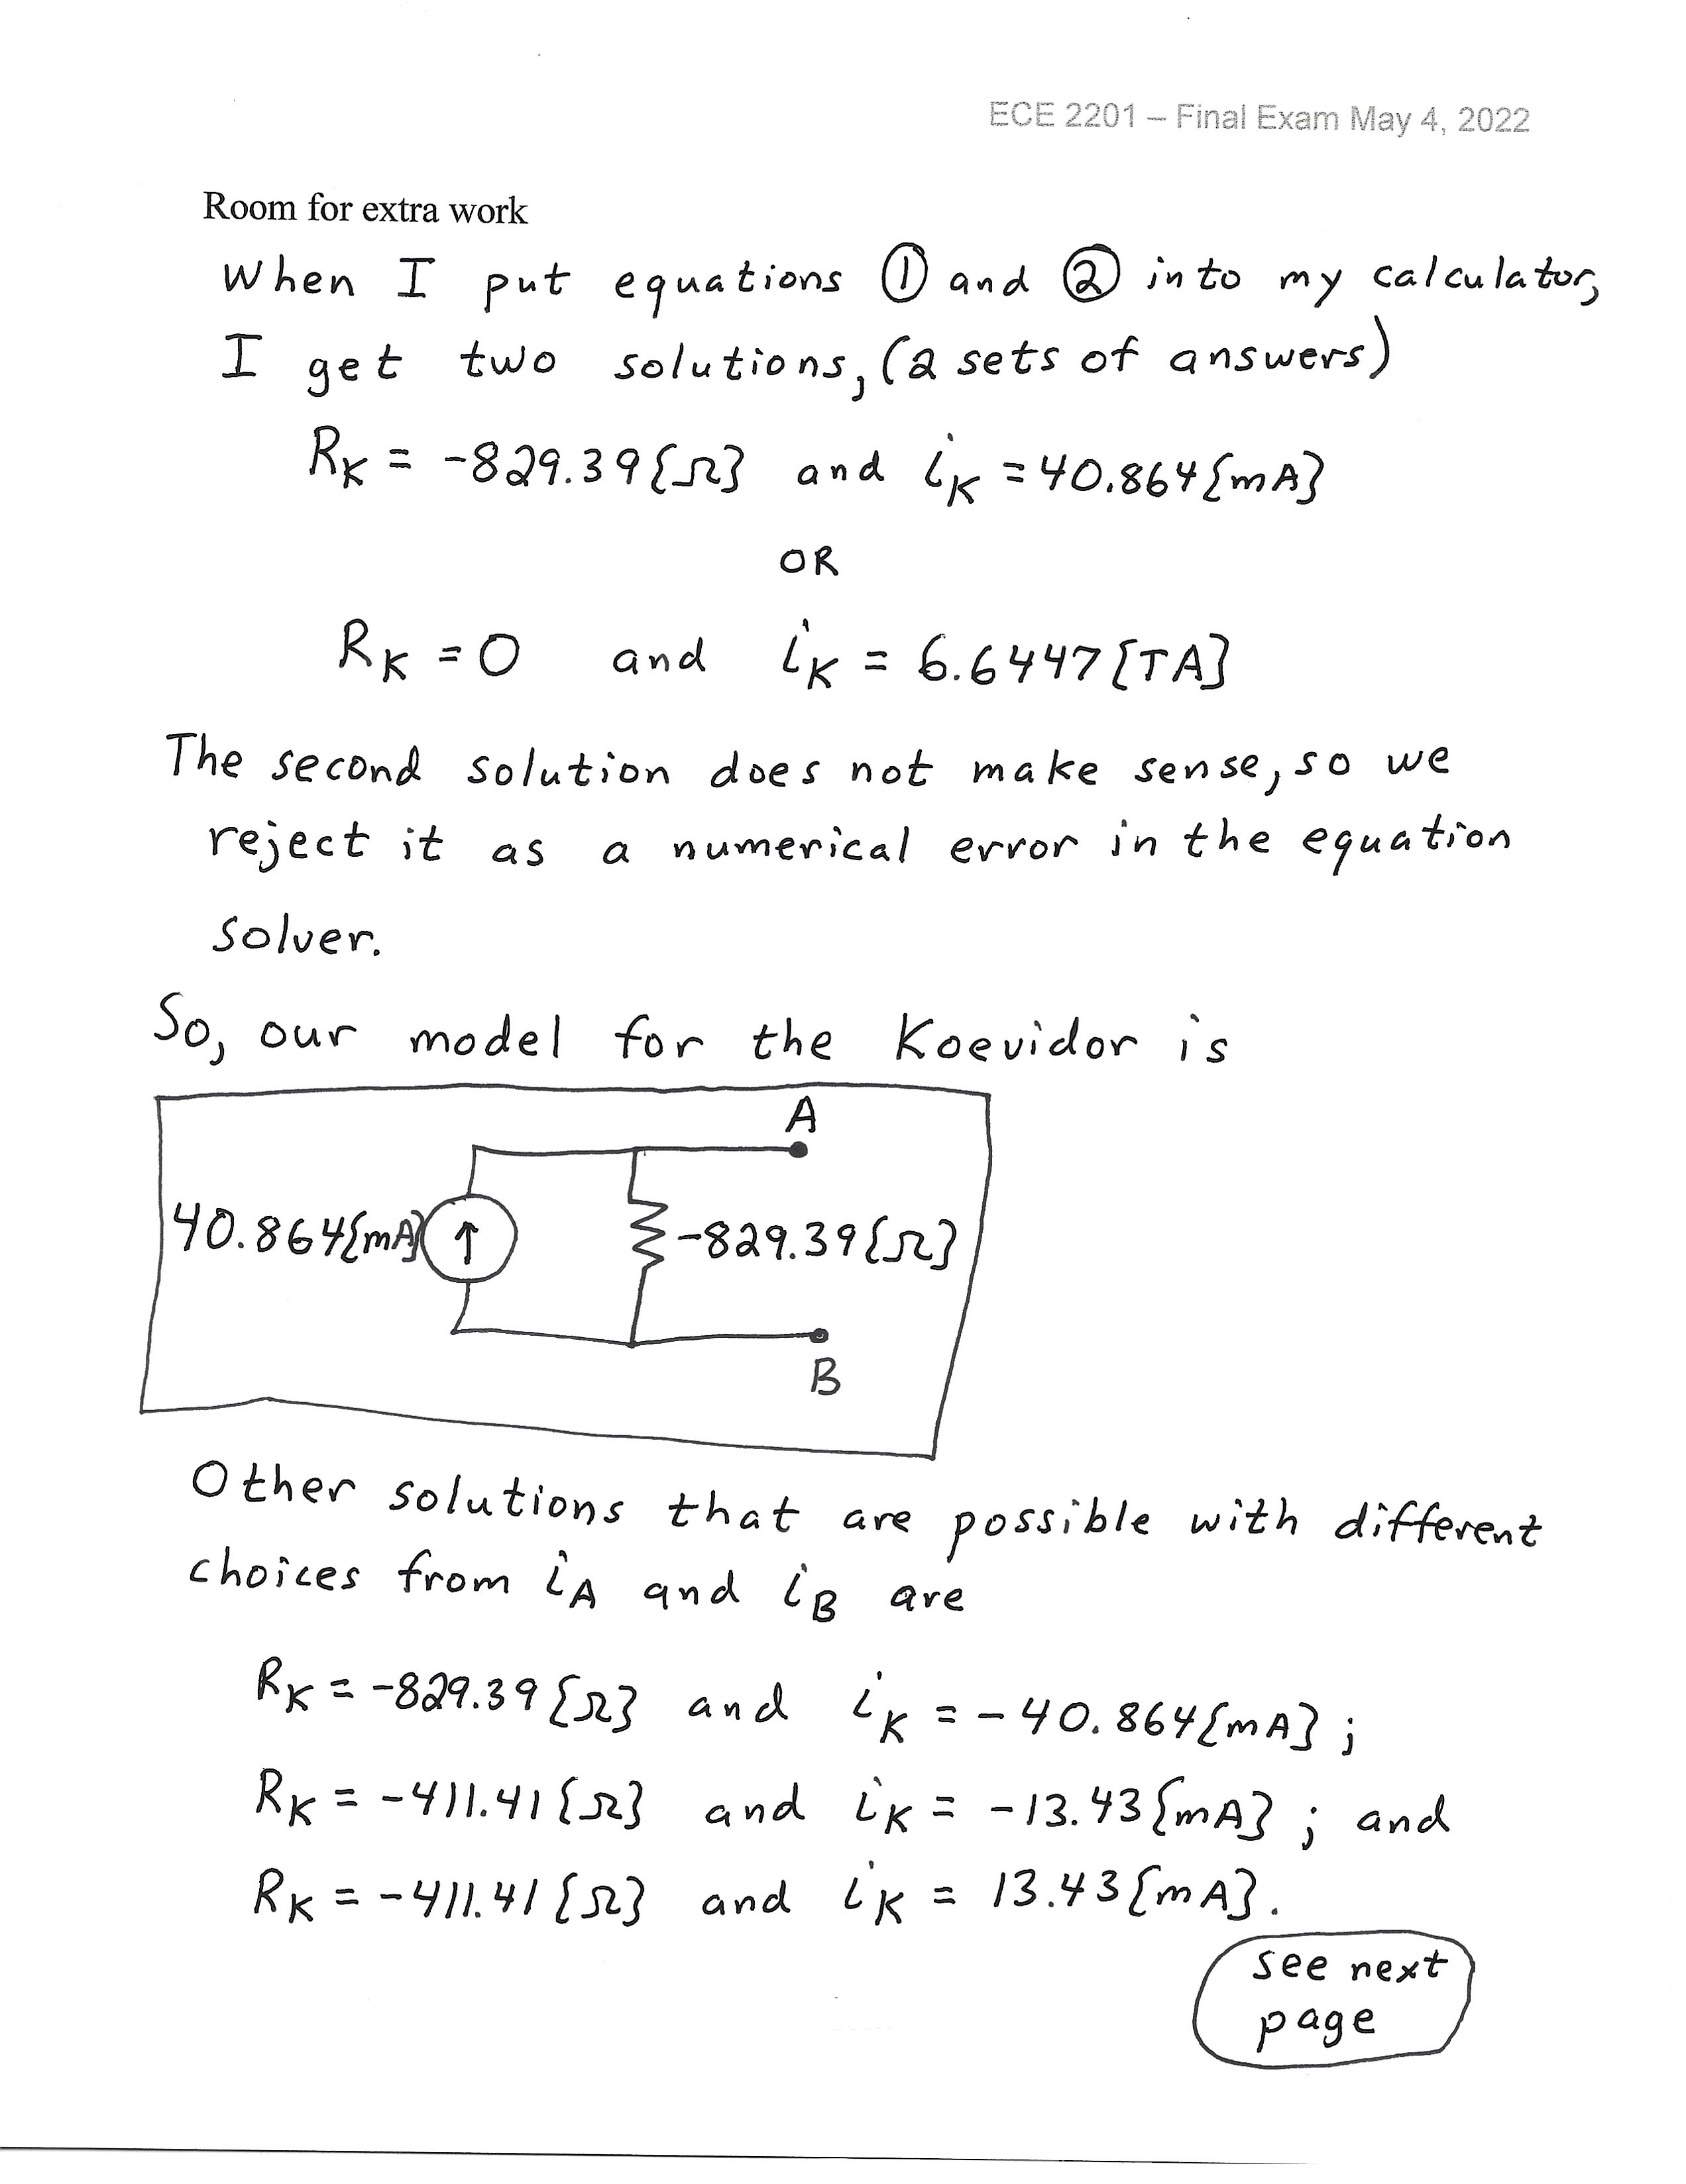 ECE 2201 – Final Exam May 4, 2022
Room for extra work
When I put equations ① and ② into my calculator,
I get two solutions, (2 sets of answers)
R_K = -829.39{Ω} and i_K = 40.864{mA}
OR
R_K = 0 and i_K = 6.6447[TA]
The second solution does not make sense, so we
reject it as a numerical error in the equation
solver.
So, our model for the Koevidor is
A
40.864{mA} ↑ -829.39{Ω}
B
Other solutions that are possible with different
choices from i_A and i_B are
R_K = -829.39{Ω} and i_K = -40.864{mA};
R_K = -411.41{Ω} and i_K = -13.43{mA}; and
R_K = -411.41{Ω} and i_K = 13.43{mA}.
see next
page